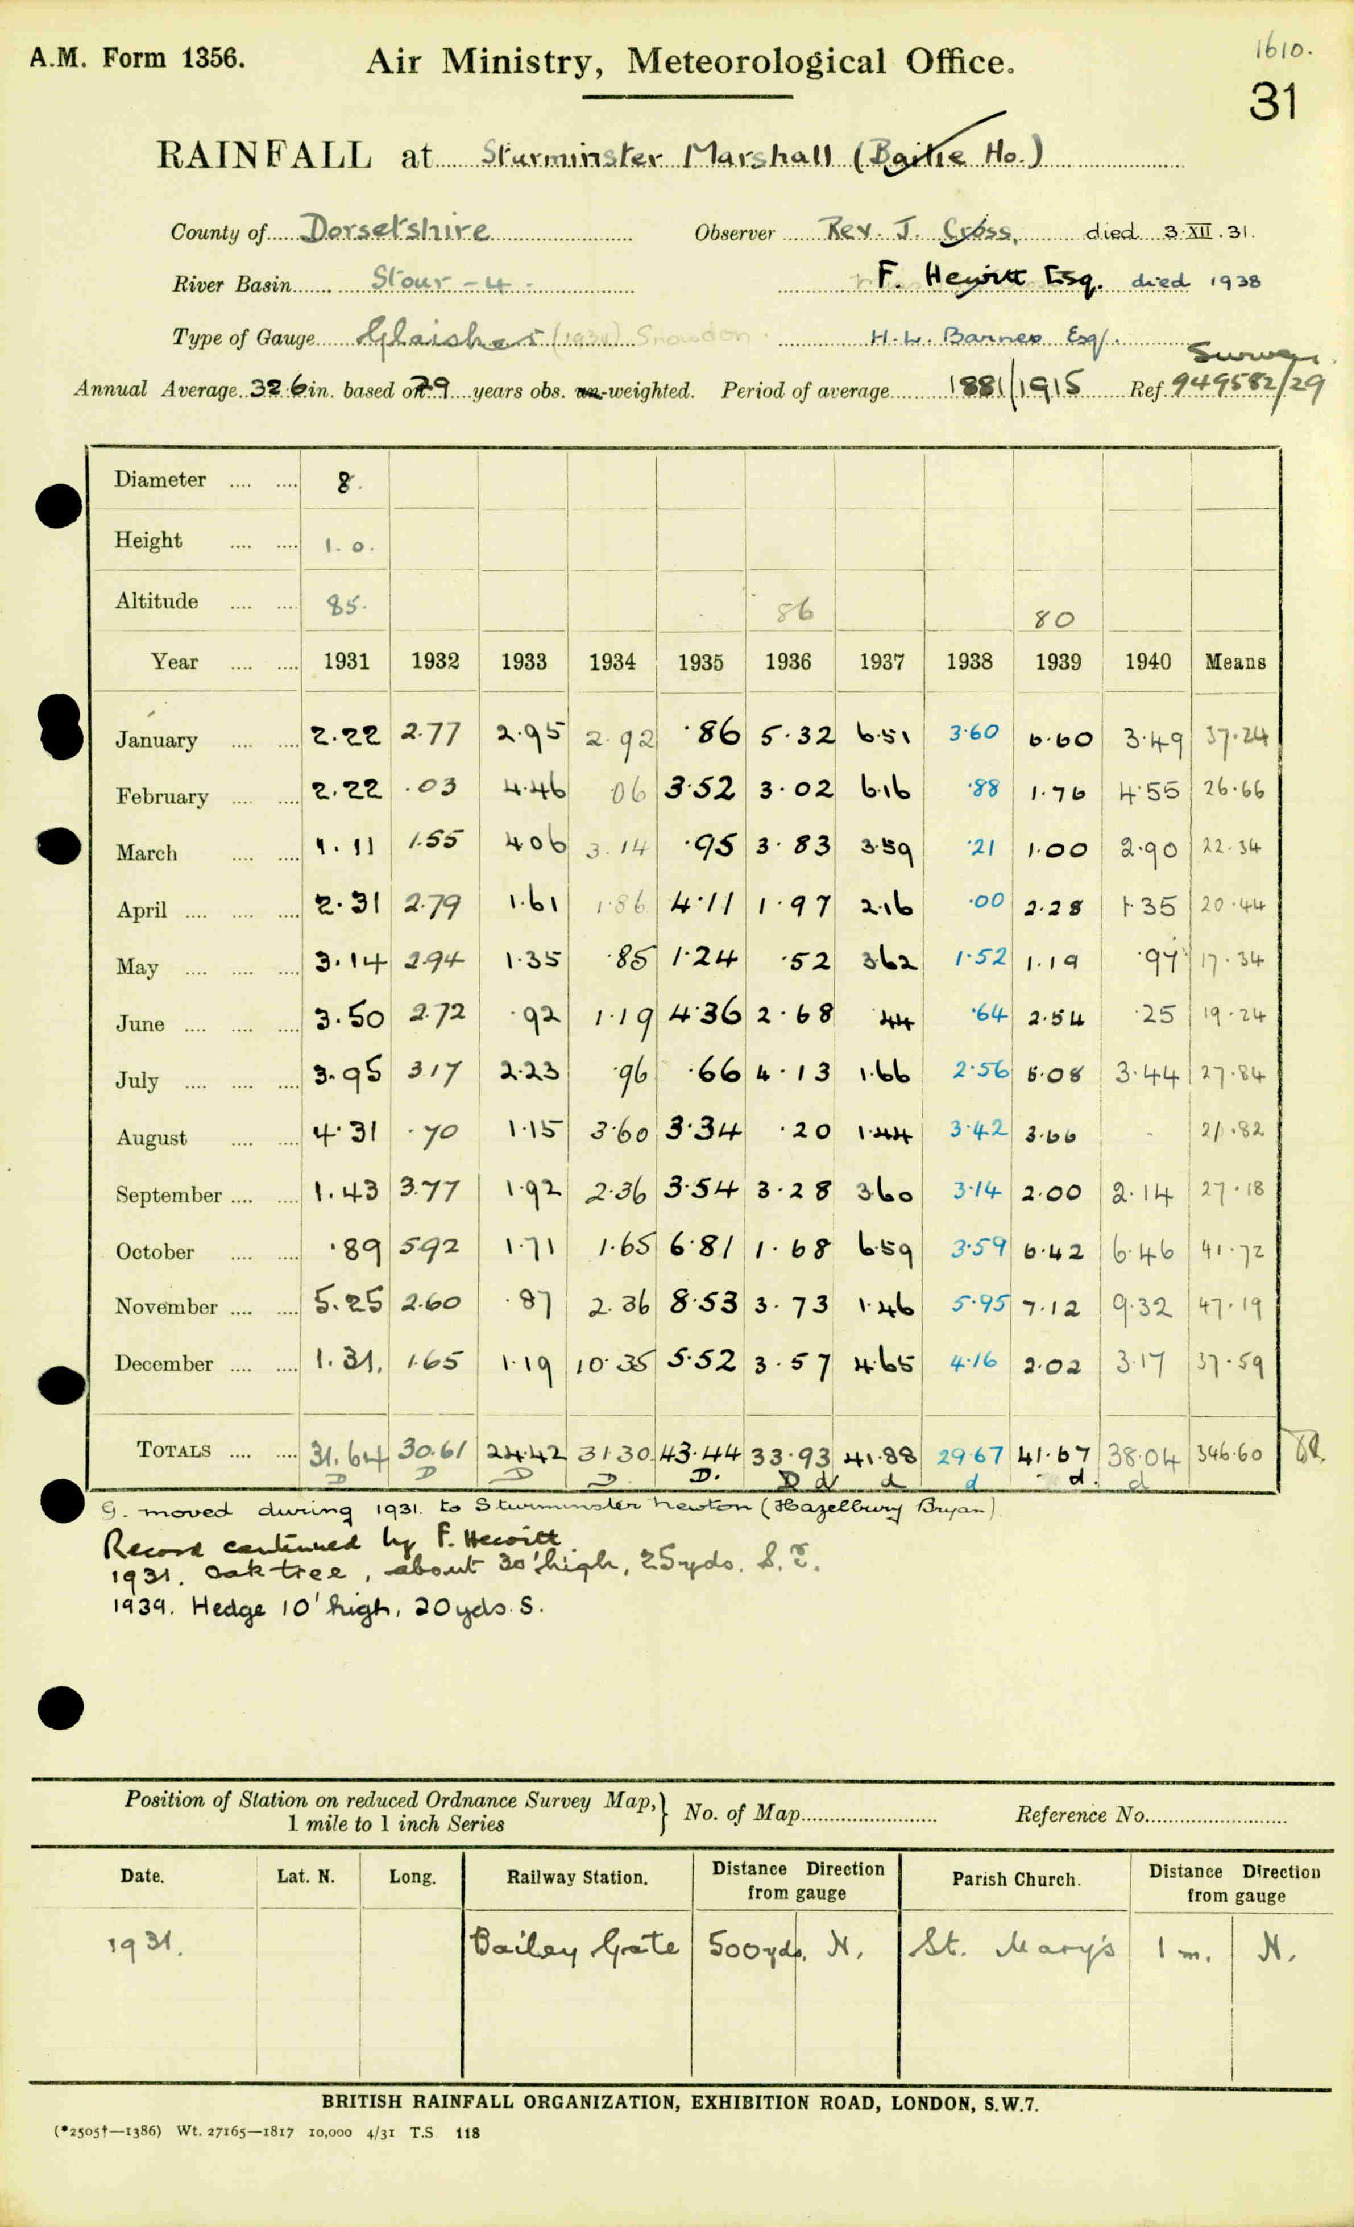 1610.
A.M. Form 1356.
Air Ministry, Meteorological Office.
31
RAINFALL at Sturminster Marshall (Bailie Ho.)
County of Dorsetshire Observer Rev. J. Cross, died 3.XII.31.
River Basin Stour - 4 - F. Hewitt Esq. died 1938
Type of Gauge Glaisher (1934) Snowdon. H.W. Barnes Esq.
Annual Average 32.6 in. based on 29 years obs. un-weighted. Period of average 1881/1915 Ref. 949582/29
Diameter 8.
Height 1. 0.
Altitude 85. 86 80
Year 1931 1932 1933 1934 1935 1936 1937 1938 1939 1940 Means
January 2.22 2.77 2.95 2.92 .86 5.32 6.51 3.60 6.60 3.49 37.24
February 2.22 .03 4.46 06 3.52 3.02 6.16 .88 1.76 4.55 26.66
March 1.11 1.55 4 06 3.14 .95 3.83 3.59 .21 1.00 2.90 22.34
April 2.31 2.79 1.61 1.86 4.11 1.97 2.16 .00 2.28 1.35 20.44
May 3.14 2.94 1.35 .85 1.24 .52 3.62 1.52 1.19 .97 17.34
June 3.50 2.72 .92 1.19 4.36 2.68 .44 .64 2.54 .25 19.24
July 3.95 3.17 2.23 .96 .66 4.13 1.66 2.56 5.08 3.44 27.84
August 4.31 .70 1.15 3.60 3.34 .20 1.44 3.42 3.66 - 21.82
September 1.43 3.77 1.92 2.36 3.54 3.28 3.60 3.14 2.00 2.14 27.18
October .89 5.92 1.71 1.65 6.81 1.68 6.59 3.59 6.42 6.46 41.72
November 5.25 2.60 .87 2.36 8.53 3.73 1.46 5.95 7.12 9.32 47.19
December 1.31. 1.65 1.19 10.35 5.52 3.57 4.65 4.16 2.02 3.17 37.59
TOTALS 31.64 30.61 24.42 31.30 43.44 33.93 41.88 29.67 41.67 38.04 346.60
D D D D. D. D d d d d. d
G. moved during 1931. to Sturminster Newton (Hazelbury Bryan)
Record continued by F. Hewitt.
1931. Oak tree, about 30' high, 25 yds. S.E.
1939. Hedge 10' high, 20 yds. S.
Position of Station on reduced Ordnance Survey Map,
1 mile to 1 inch Series
No. of Map Reference No.
Date. Lat. N. Long. Railway Station. Distance Direction from gauge Parish Church. Distance Direction from gauge
1931. Bailey Gate 500 yds. N. St. Mary's 1 m. N.
BRITISH RAINFALL ORGANIZATION, EXHIBITION ROAD, LONDON, S.W.7.
(*2505†—1386) Wt. 27165—1817 10,000 4/31 T.S 118